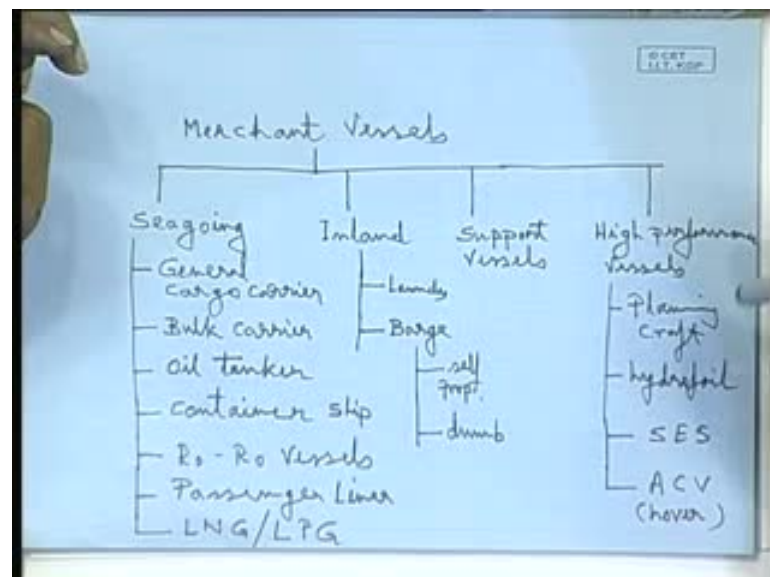 © CET
I.I.T. KGP
Merchant Vessels
Seagoing
General
cargo carrier
Bulk carrier
Oil tanker
Container ship
Ro-Ro Vessels
Passenger Liner
LNG/LPG
Inland
Launch
Barge
self
prop.
dumb
Support
Vessels
High performance
Vessels
Planing
craft
hydrofoil
SES
ACV
(hover)